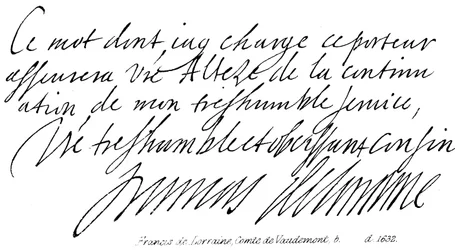 Ce mot dont jay charge ce porteur
asseurera Vre Alteze de la continu
ation de mon treshumble service,
Vre treshumble et obeissant Cousin
francois de lorraine
Francis de Lorraine, Comte de Vaudemont, b. d. 1632.